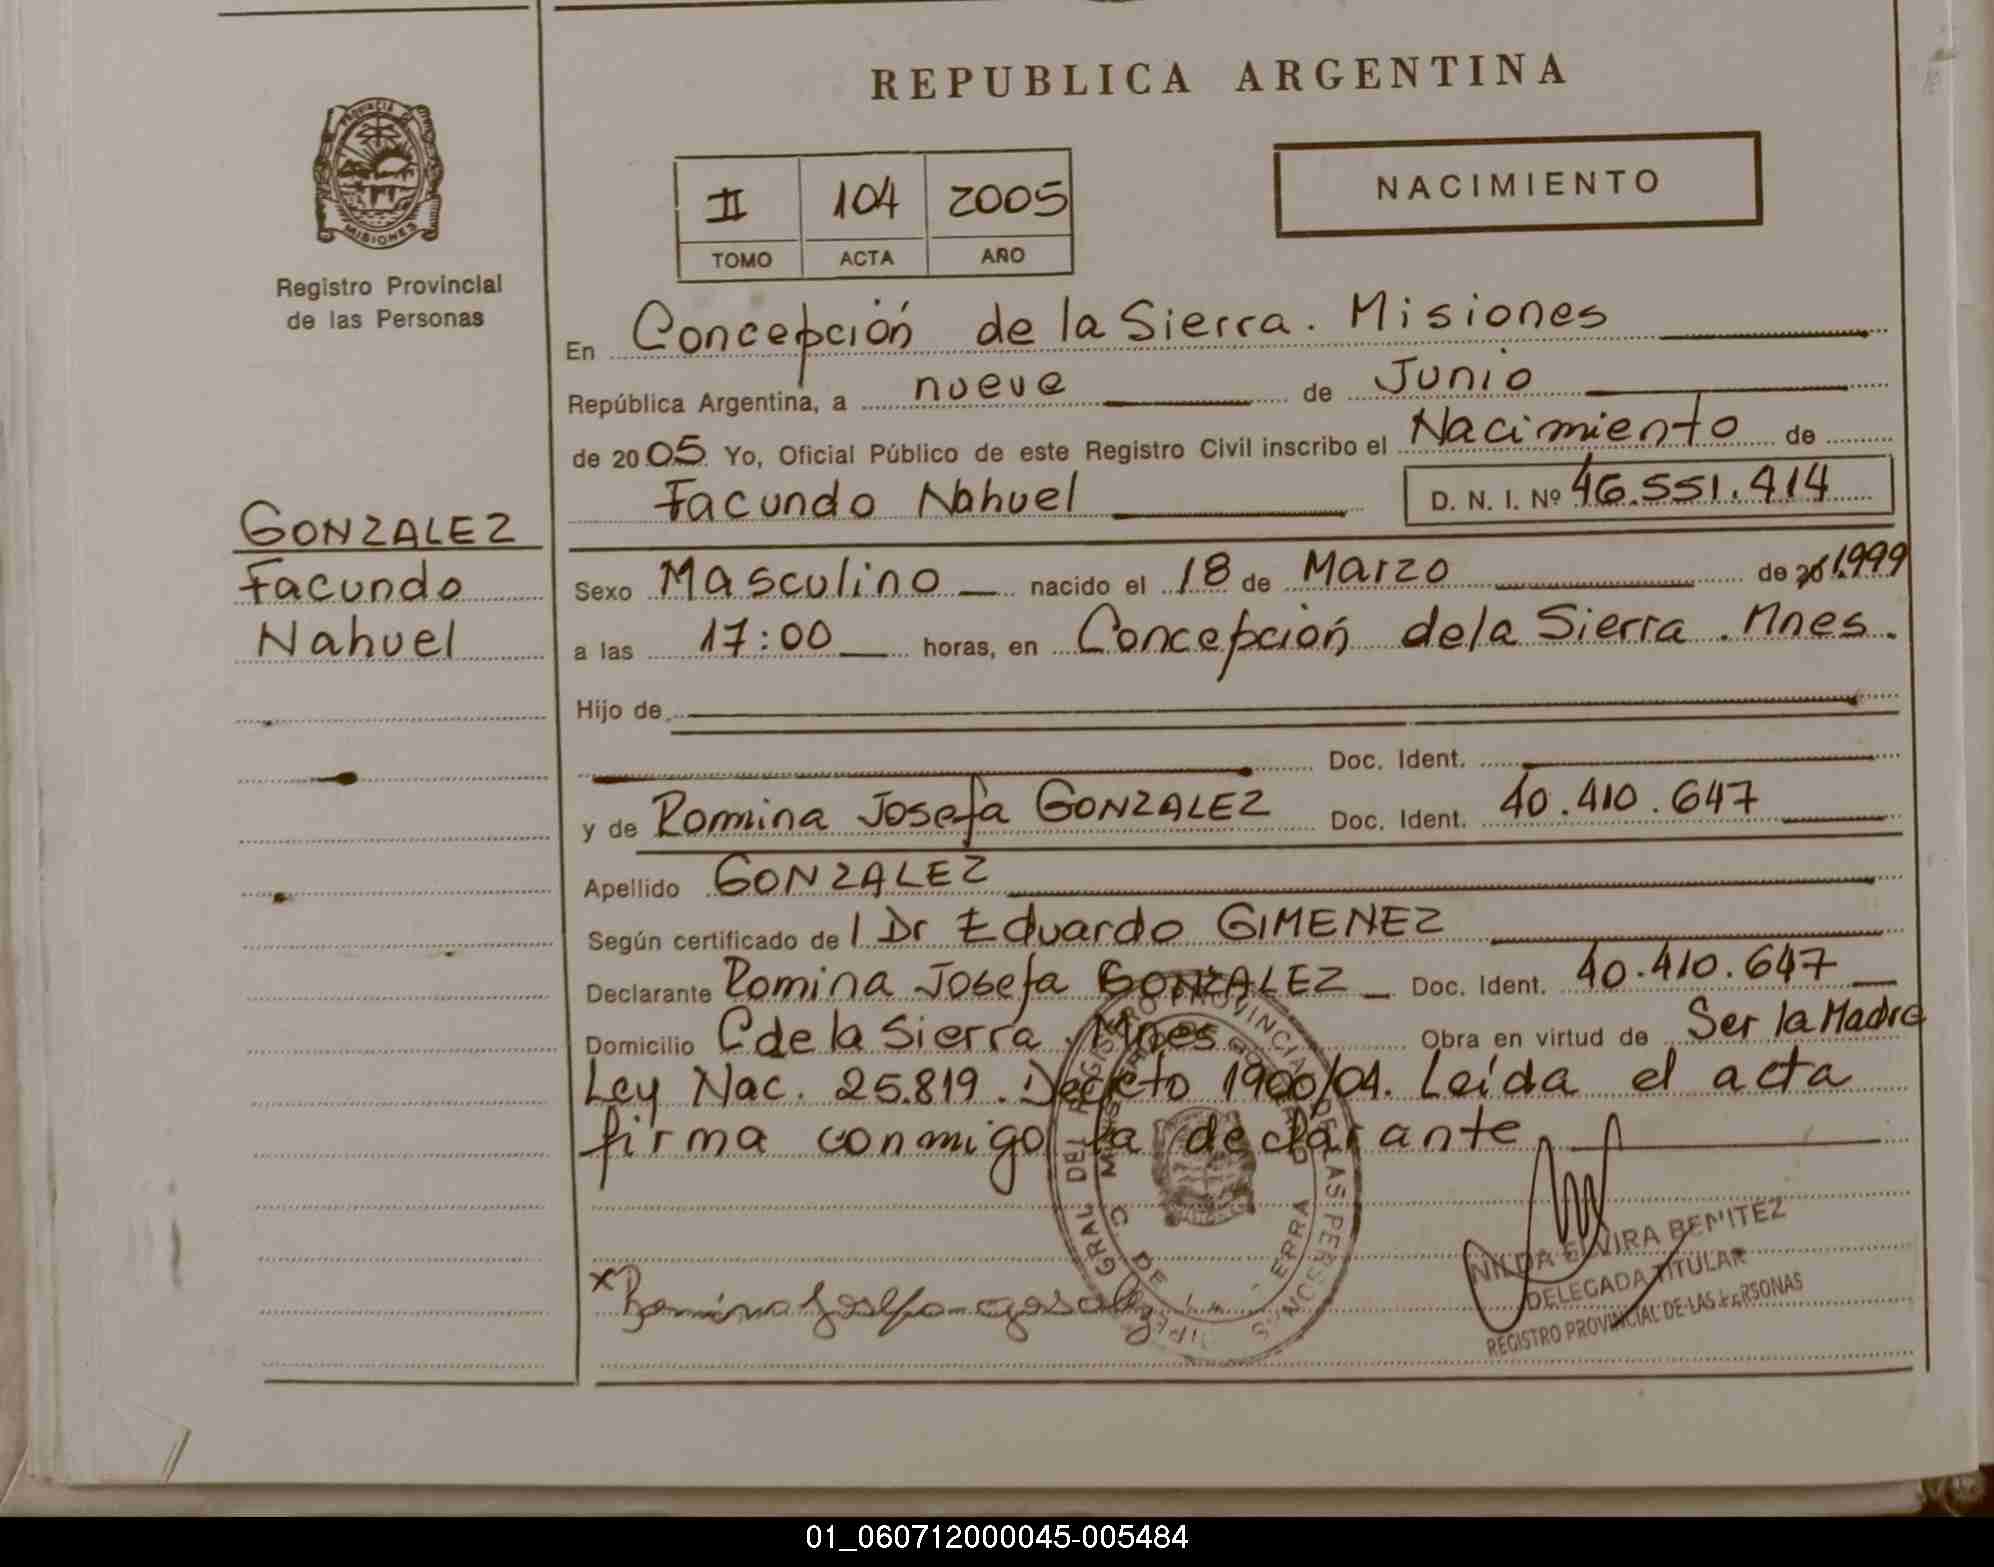 REPUBLICA ARGENTINA
PROVINCIA DE MISIONES
Registro Provincial
de las Personas
NACIMIENTO
II 104 2005
TOMO ACTA AÑO
En Concepción de la Sierra. Misiones
República Argentina, a nueve de Junio
de 2005 Yo, Oficial Público de este Registro Civil inscribo el Nacimiento de
Facundo Nahuel D. N. I. Nº 46.551.414
GONZALEZ
Facundo
Nahuel
Sexo Masculino nacido el 18 de Marzo de 1.999
a las 17:00 horas, en Concepción de la Sierra. Mnes.
Hijo de
Doc. Ident.
y de Romina Josefa GONZALEZ Doc. Ident. 40.410.647
Apellido GONZALEZ
Según certificado de l Dr Eduardo GIMENEZ
Declarante Romina Josefa GONZALEZ Doc. Ident. 40.410.647
Domicilio C de la Sierra. Mnes. Obra en virtud de Ser la Madre
Ley Nac. 25.819. Decreto 1900/04. Leída el acta
firma conmigo la declarante
x Romina Josefa
NILDA ELVIRA BENITEZ
DELEGADA TITULAR
REGISTRO PROVINCIAL DE LAS PERSONAS
01_060712000045-005484